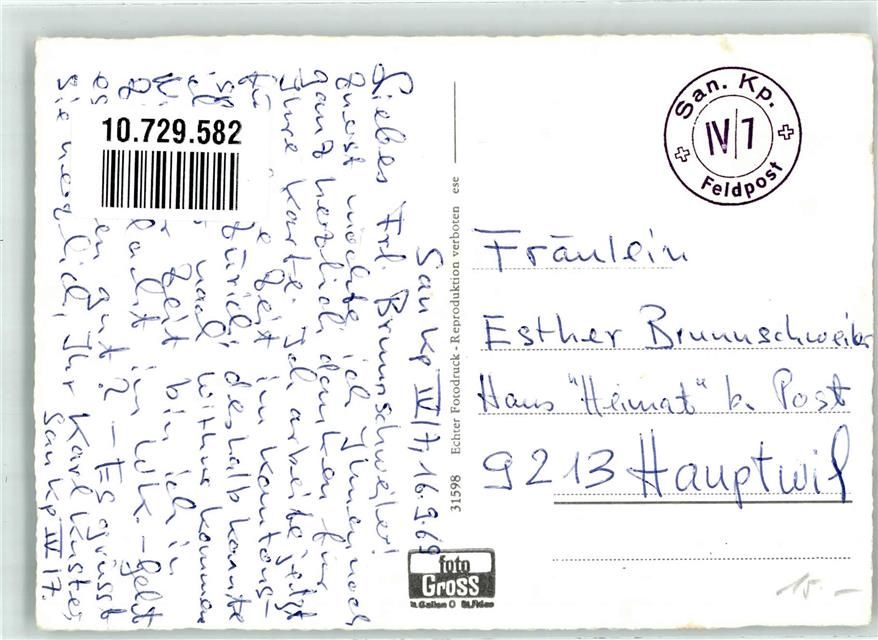 San Kp IV/7, 16.9.69
Liebes Frl. Brunnschweiler!
Zuerst möchte ich Ihnen noch
ganz herzlich danken für
Ihre Karte. Ich arbeite jetzt
Zeit im Kantons-
Zürich, deshalb konnte
nach Wittnau kommen
Zeit bin ich in
im WK. – Geht
es gut? – Es grüsst
Sie herzlich, Ihr Karl Kuster,
San Kp IV/7.
10.729.582
31598 Echter Fotodruck - Reproduktion verboten ese
foto
Gross
St. Gallen O St. Fiden
San. Kp.
IV/7
Feldpost
Fräulein
Esther Brunnschweiler
Haus "Heimat" b. Post
9213 Hauptwil
15.–